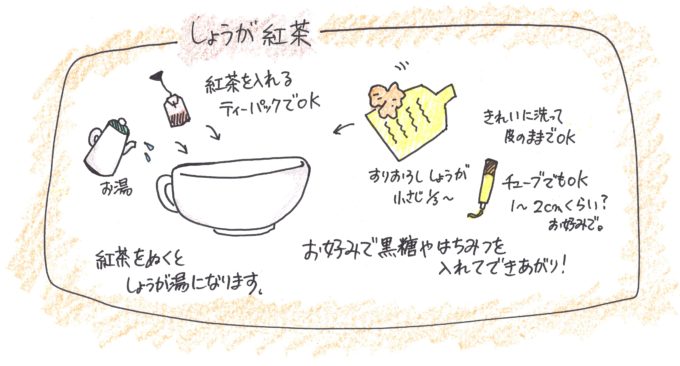 しょうが紅茶
紅茶を入れる
ティーパックでOK
お湯
きれいに洗って
皮のままでOK
すりおろししょうが
小さじ1/3〜
チューブでもOK
1〜2cmくらい?
お好みで。
紅茶をぬくと
しょうが湯になります。
お好みで黒糖やはちみつを
入れてできあがり!